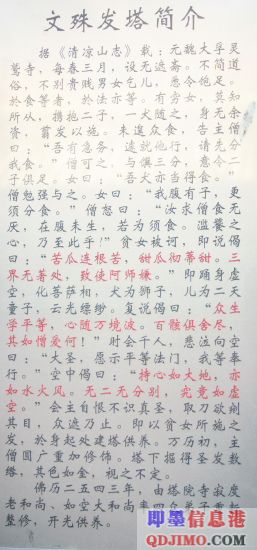 文殊发塔简介
据《清凉山志》载：元魏大孚灵
鹫寺，每春三月，设无遮斋。不简道
俗，不别贵贱男女乞儿，愿令饱足。
於食等者，於法亦等。有旁女，莫知
所从，携抱二子，一犬随之，身无余
资，剪发以施。未遑众食，告主僧
曰：“吾有急务，遽就他行，请先分
我食。”僧可之，与馔三分，意令二
子俱足。女曰：“吾犬亦当得食。”
僧勉强与之。女曰：“我腹有子，更
须分食。”僧怒曰：“汝求僧食无
厌，在腹未生，若为须食。滥饕之
心，乃至此乎！”贫女被诃，即说偈
曰：“苦瓜连根苦，甜瓜彻蒂甜。三
界无著处，致使阿师嫌。”即踊身虚
空，化菩萨相，犬为狮子，儿为二天
童子，云光缥缈。复说偈曰：“众生
学平等，心随万境波。百骸俱舍尽，
其如憎爱何！”时会千人，悲泣向空
曰：“大圣，愿示平等法门，我等奉
行。”空中偈曰：“持心如大地，亦
如水火风。无二无分别，究竟如虚
空。”会主自恨不识真圣，取刀欲剜
其目，众遮乃止。即以贫女所施之
发，於身起处建塔供养。万历初，主
僧圆广重加修饰。塔下掘得圣发数
绺，其色如金，视之不定。
佛历二五四三年，由塔院寺寂度
老和尚、如空大和尚率四众弟子重新
整修，开光供养。
即墨信息港
QDJIMO.COM